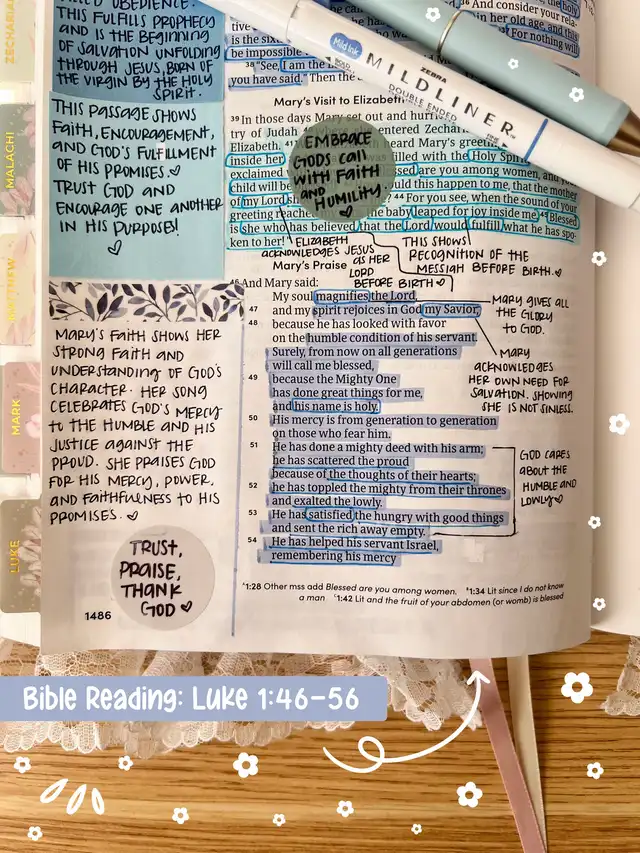 ZECHARIAH
MALACHI
MATTHEW
MARK
LUKE
OBEDIENCE.
THIS FULFILLS PROPHECY
AND IS THE BEGINNING
OF SALVATION UNFOLDING
THROUGH JESUS, BORN OF
THE VIRGIN BY THE HOLY
SPIRIT.
THIS PASSAGE SHOWS
FAITH, ENCOURAGEMENT,
AND GOD'S FULFILLMENT
OF HIS PROMISES. ♡
TRUST GOD AND
ENCOURAGE ONE ANOTHER
IN HIS PURPOSE!
♡
MARY'S FAITH SHOWS HER
STRONG FAITH AND
UNDERSTANDING OF GOD'S
CHARACTER. HER SONG
CELEBRATES GOD'S MERCY
TO THE HUMBLE AND HIS
JUSTICE AGAINST THE
PROUD. SHE PRAISES GOD
FOR HIS MERCY, POWER,
AND FAITHFULNESS TO HIS
PROMISES. ♡
TRUST,
PRAISE,
THANK
GOD ♡
1486
36 And consider your rela-
in her old age, and this
is the six
For nothing will
be impossible
38 "See, I am the
you have said." Then the
Mild ink
ZEBRA
MILDLINER
DOUBLE ENDED
Mary's Visit to Elizabeth
39 In those days Mary set out and hurri
try of Judah entered Zechar
Elizabeth. 41 heard Mary's greeti
inside her was filled with the Holy Spir
exclaimed are you among women, and your
child will be uld this happen to me, that the mother
of my Lord 44 For you see, when the sound of your
greeting reache the baby leaped for joy inside me. 45 Blessed
is she who has believed that the Lord would fulfill what he has spo-
ken to her!
EMBRACE
GODS CALL
WITH FAITH
AND
HUMILITY.
♡
ELIZABETH
ACKNOWLEDGES JESUS
AS HER
LORD
BEFORE BIRTH ♡
THIS SHOWS
RECOGNITION OF THE
MESSIAH BEFORE BIRTH. ♡
Mary's Praise
46 And Mary said:
My soul magnifies the Lord,
47 and my spirit rejoices in God my Savior,
48 because he has looked with favor
on the humble condition of his servant.
Surely, from now on all generations
will call me blessed,
49 because the Mighty One
has done great things for me,
and his name is holy.
50 His mercy is from generation to generation
on those who fear him.
51 He has done a mighty deed with his arm;
he has scattered the proud
because of the thoughts of their hearts;
52 he has toppled the mighty from their thrones
and exalted the lowly.
53 He has satisfied the hungry with good things
and sent the rich away empty.
54 He has helped his servant Israel,
remembering his mercy
MARY GIVES ALL
THE GLORY
TO GOD.
MARY
ACKNOWLEDGES
HER OWN NEED FOR
SALVATION. SHOWING
SHE IS NOT SINLESS.
GOD CARES
ABOUT THE
HUMBLE AND
LOWLY ♡
1:28 Other mss add Blessed are you among women. 1:34 Lit since I do not know
a man 1:42 Lit and the fruit of your abdomen (or womb) is blessed
Bible Reading: Luke 1:46-56